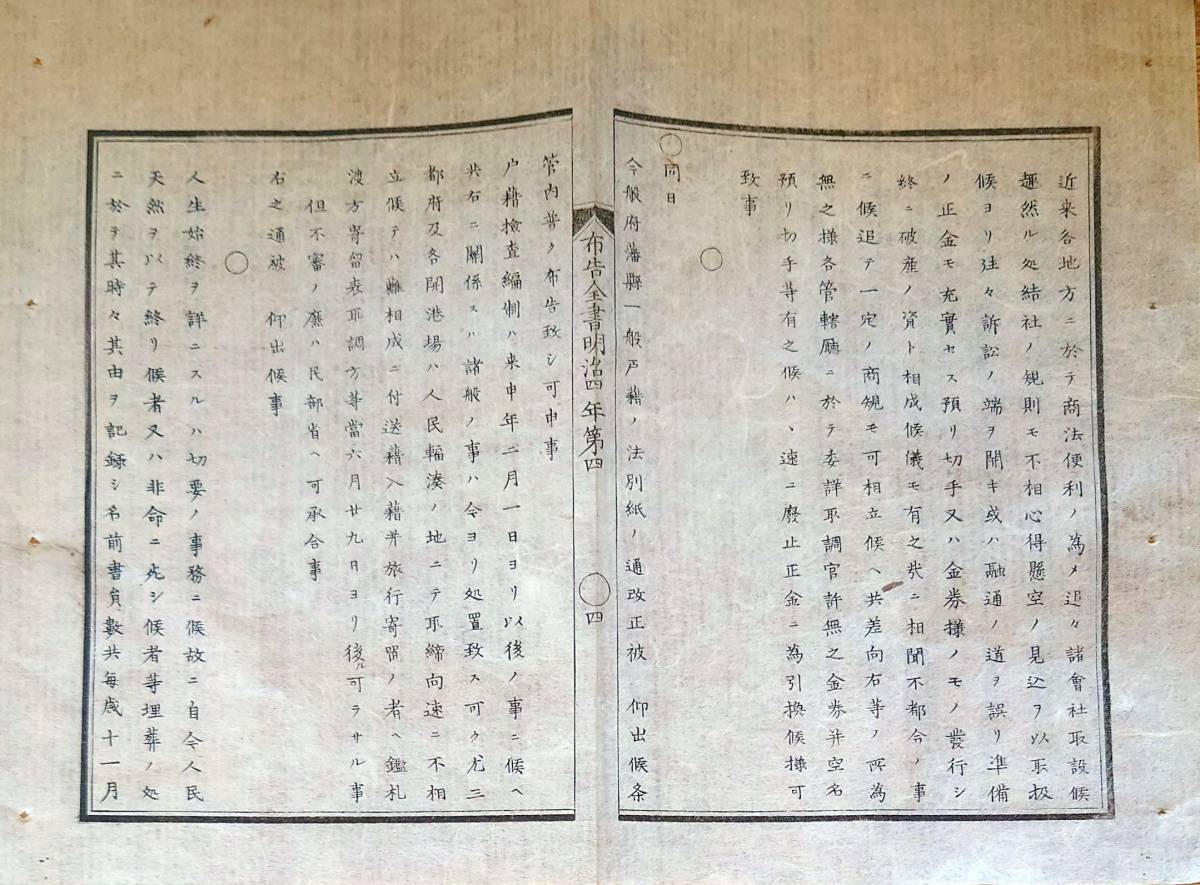 近来各地方ニ於テ商法便利ノ為メ追々諸會社取設候
趣然ル処結社ノ規則モ不相心得懸空ノ見込ヲ以取扱
候ヨリ往々訴訟ノ端ヲ開キ或ハ融通ノ道ヲ誤リ準備
ノ正金モ充實セス預リ切手又ハ金券様ノモノ發行シ
終ニ破産ノ資ト相成候儀モ有之哉ニ相聞不都合ノ事
ニ候追テ一定ノ商規モ可相立候ヘ共差向右等ノ所為
無之様各管轄廳ニ於テ委詳取調官許無之金券并空名
預リ切手等有之候ハヽ速ニ廢止正金ニ為引換候様可
致事
○
○同日
今般府藩縣一般戸籍ノ法別紙ノ通改正被 仰出候条
布告全書明治四年第四
○四
管内普ク布告致シ可申事
戸籍檢査編制ハ来申年二月一日ヨリ以後ノ事ニ候ヘ
共右ニ關係スル諸般ノ事ハ今ヨリ処置致ス可ク尤三
都府及各開港場ハ人民輻湊ノ地ニテ取締向速ニ不相
立候テハ難相成ニ付送籍入籍并旅行寄留ノ者ヘ鑑札
渡方寄留表取調方等當六月廿九日ヨリ後ル可ラサル事
但不審ノ廉ハ民部省ヘ可承合事
右之通被 仰出候事
○
人生始終ヲ詳ニスルハ切要ノ事務ニ候故ニ自今人民
天然ヲ以テ終リ候者又ハ非命ニ死シ候者等埋葬ノ処
ニ於テ其時々其由ヲ記録シ名前書員數共毎歳十一月